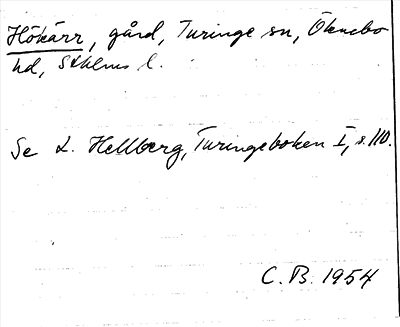 Hökärr, gård, Turinge sn, Öknebo
hd, Sthlms l.
Se L. Hellberg, Turingeboken I, s. 110.
C. B. 1954